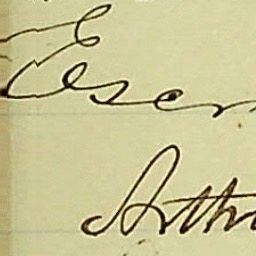 Escr
Arthu